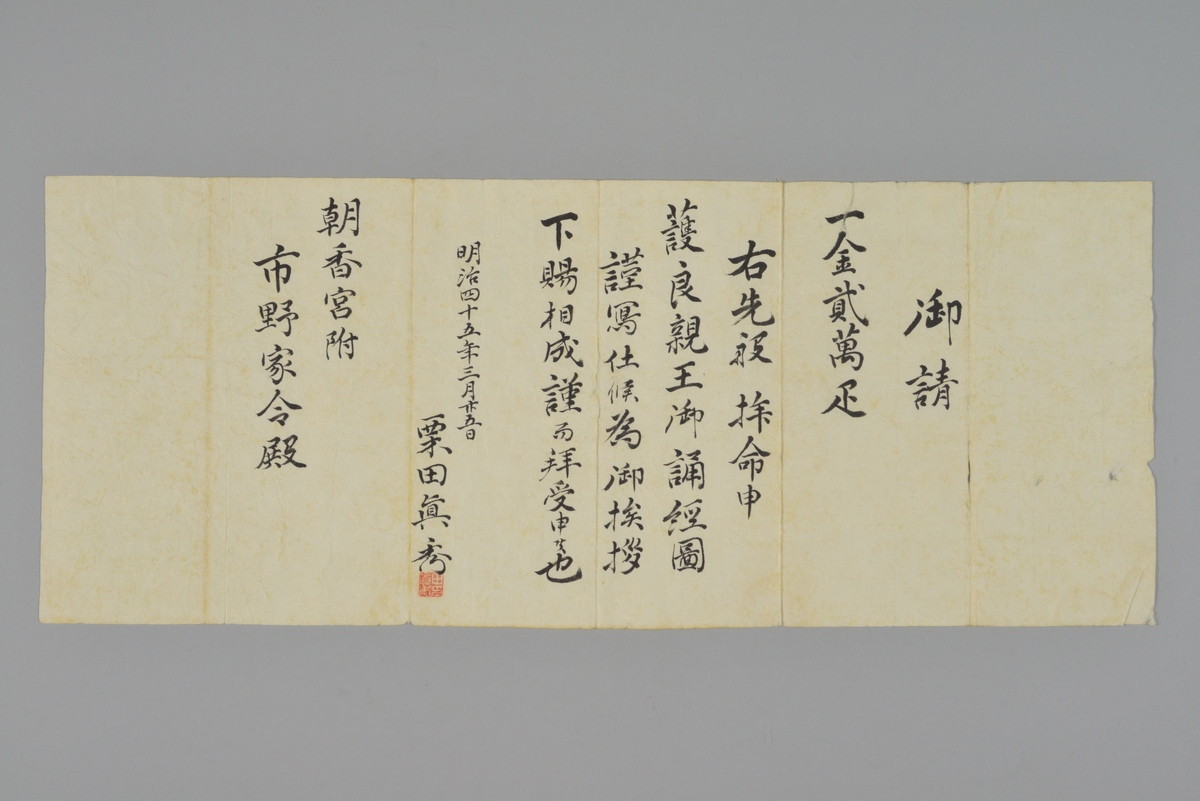 御請
一金貳萬疋
右先般拝命申
護良親王御誦經圖
謹寫仕候為御挨拶
下賜相成謹而拝受申候也
明治四十五年三月廿五日
粟田眞秀
朝香宮附
市野家令殿